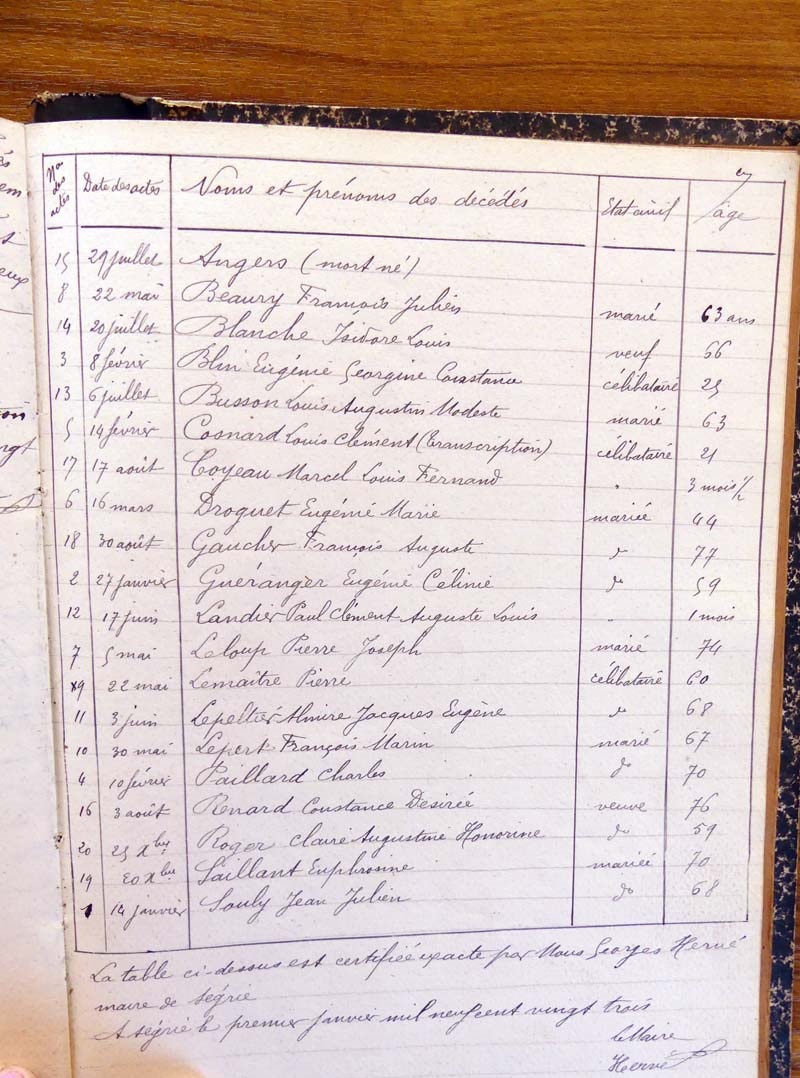 Nos des actes Date des actes Noms et prénoms des décédés Etat civil âge
15 29 juillet Angers (mort né)
8 22 mai Beaury François Julien marié 63 ans
14 20 juillet Blanche Isidore Louis veuf 66
3 8 févrir Blin Eugénie Georgine Constance célibataire 25
13 6 juillet Busson Louis Augustin Modeste marié 63
5 14 février Cosnard Louis Clément (Transcription) célibataire 21
17 17 août Coyeau Marcel Louis Fernand " 3 mois 1/2
6 16 mars Droguet Eugénie Marie mariée 44
18 30 août Gaucher François Auguste do 77
2 27 janvier Guéranger Eugénie Célinie do 59
12 17 juin Landier Paul Clément Auguste Louis " 1 mois
7 5 mai Leloup Pierre Joseph marié 74
9 22 mai Lemaître Pierre célibataire 60
11 3 juin Lepeltier Almire Jacques Eugène do 68
10 30 mai Lepert François Marin marié 67
4 10 février Paillard Charles do 70
16 3 août Renard Constance Désirée veuve 76
20 25 Xbre Roger Claire Augustine Honorine do 59
19 20 Xbre Saillant Euphrosine mariée 70
1 14 janvier Souly Jean Julien do 68
La table ci-dessus est certifiée exacte par Nous Georges Hervé
maire de Ségrie
A Ségrie le premier janvier mil neuf cent vingt trois
Le Maire
Hervé